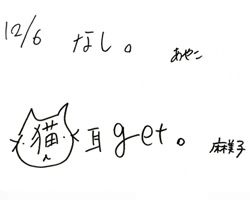 12/6 なし。 あやこ
猫耳get。 麻美子